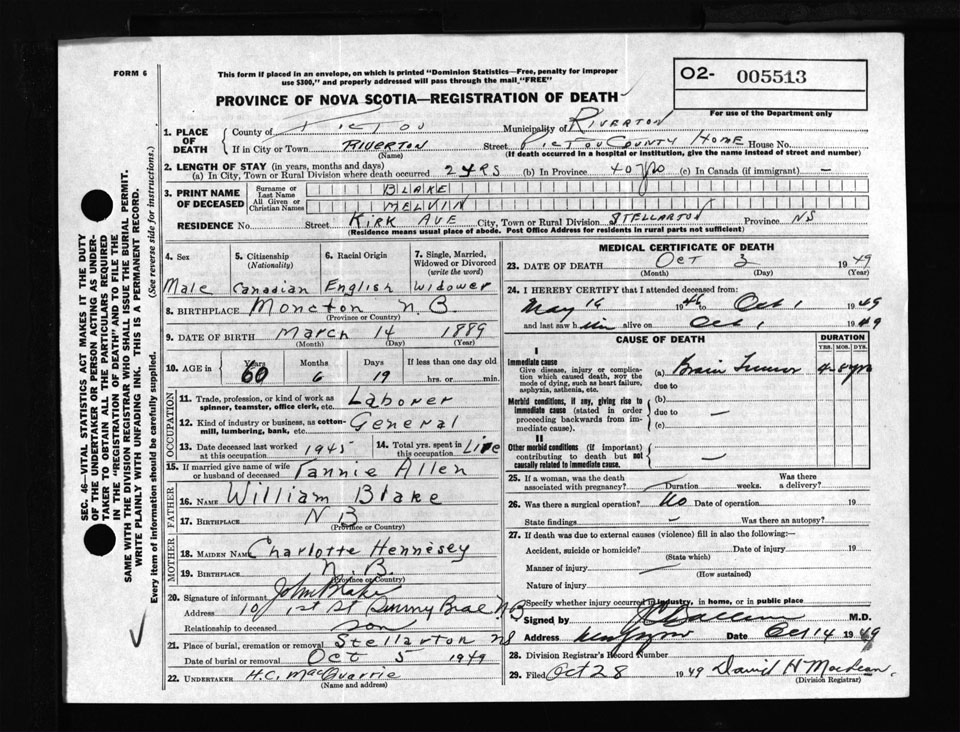 FORM 6
This form if placed in an envelope, on which is printed "Dominion Statistics—Free, penalty for improper
use $300," and properly addressed will pass through the mail, "FREE"
O2- 005513
PROVINCE OF NOVA SCOTIA—REGISTRATION OF DEATH
For use of the Department only
1. PLACE OF DEATH
County of PICTOU Municipality of RIVERTON
If in City or Town RIVERTON Street PICTOU COUNTY HOME House No.
(Name) (If death occurred in a hospital or institution, give the name instead of street and number)
2. LENGTH OF STAY (in years, months and days)
(a) In City, Town or Rural Division where death occurred 2 YRS (b) In Province 40 yrs (c) In Canada (if immigrant) —
3. PRINT NAME OF DECEASED
Surname or Last Name BLAKE
All Given or Christian Names MELVIN
RESIDENCE No. Street KIRK AVE City, Town or Rural Division STELLARTON Province NS
(Residence means usual place of abode. Post Office Address for residents in rural parts not sufficient)
4. Sex
5. Citizenship (Nationality)
6. Racial Origin
7. Single, Married, Widowed or Divorced (write the word)
Male Canadian English Widower
8. BIRTHPLACE Moncton N.B.
(Province or Country)
9. DATE OF BIRTH March 14 1889
(Month) (Day) (Year)
10. AGE in Years Months Days If less than one day old
60 6 19 hrs. or min.
OCCUPATION
11. Trade, profession, or kind of work as spinner, teamster, office clerk, etc. Laborer
12. Kind of industry or business, as cotton-mill, lumbering, bank, etc. General
13. Date deceased last worked at this occupation 1945
14. Total yrs. spent in this occupation Life
15. If married give name of wife or husband of deceased Fannie Allen
FATHER
16. NAME William Blake
17. BIRTHPLACE N B
(Province or Country)
MOTHER
18. MAIDEN NAME Charlotte Hennesey
19. BIRTHPLACE N.B.
(Province or Country)
20. Signature of informant John Blake
Address 10 1st St Sunny Brae N B
Relationship to deceased son
21. Place of burial, cremation or removal Stellarton NS
Date of burial or removal Oct 5 1949
22. UNDERTAKER H.C. MacQuarrie
(Name and address)
MEDICAL CERTIFICATE OF DEATH
23. DATE OF DEATH Oct 3 1949
(Month) (Day) (Year)
24. I HEREBY CERTIFY that I attended deceased from:
May 19 1946 to Oct 1 1949
and last saw him alive on Oct 1 1949
CAUSE OF DEATH
DURATION
YRS. MOS. DYS.
I
Immediate cause
Give disease, injury or complication which caused death, not the mode of dying, such as heart failure, asphyxia, asthenia, etc.
(a) Brain Tumor
due to
Morbid conditions, if any, giving rise to immediate cause (stated in order proceeding backwards from immediate cause).
(b)
due to —
(c)
II
Other morbid conditions (if important) contributing to death but not causally related to immediate cause. —
25. If a woman, was the death associated with pregnancy? Duration weeks. Was there a delivery?
26. Was there a surgical operation? No Date of operation 19
State findings — Was there an autopsy?
27. If death was due to external causes (violence) fill in also the following:—
Accident, suicide or homicide? Date of injury 19
(State which)
Manner of injury
(How sustained)
Nature of injury
Specify whether injury occurred in industry, in home, or in public place
Signed by M.D.
Address Date Oct 14 1949
28. Division Registrar's Record Number
29. Filed Oct 28 1949 David H MacLean
(Division Registrar)
SEC. 46—VITAL STATISTICS ACT MAKES IT THE DUTY
OF THE UNDERTAKER OR PERSON ACTING AS UNDER-
TAKER TO OBTAIN ALL THE PARTICULARS REQUIRED
IN THE "REGISTRATION OF DEATH" AND TO FILE THE
SAME WITH THE DIVISION REGISTRAR WHO SHALL ISSUE THE BURIAL PERMIT.
WRITE PLAINLY WITH UNFADING INK. THIS IS A PERMANENT RECORD.
Every item of information should be carefully supplied. (See reverse side for instructions.)